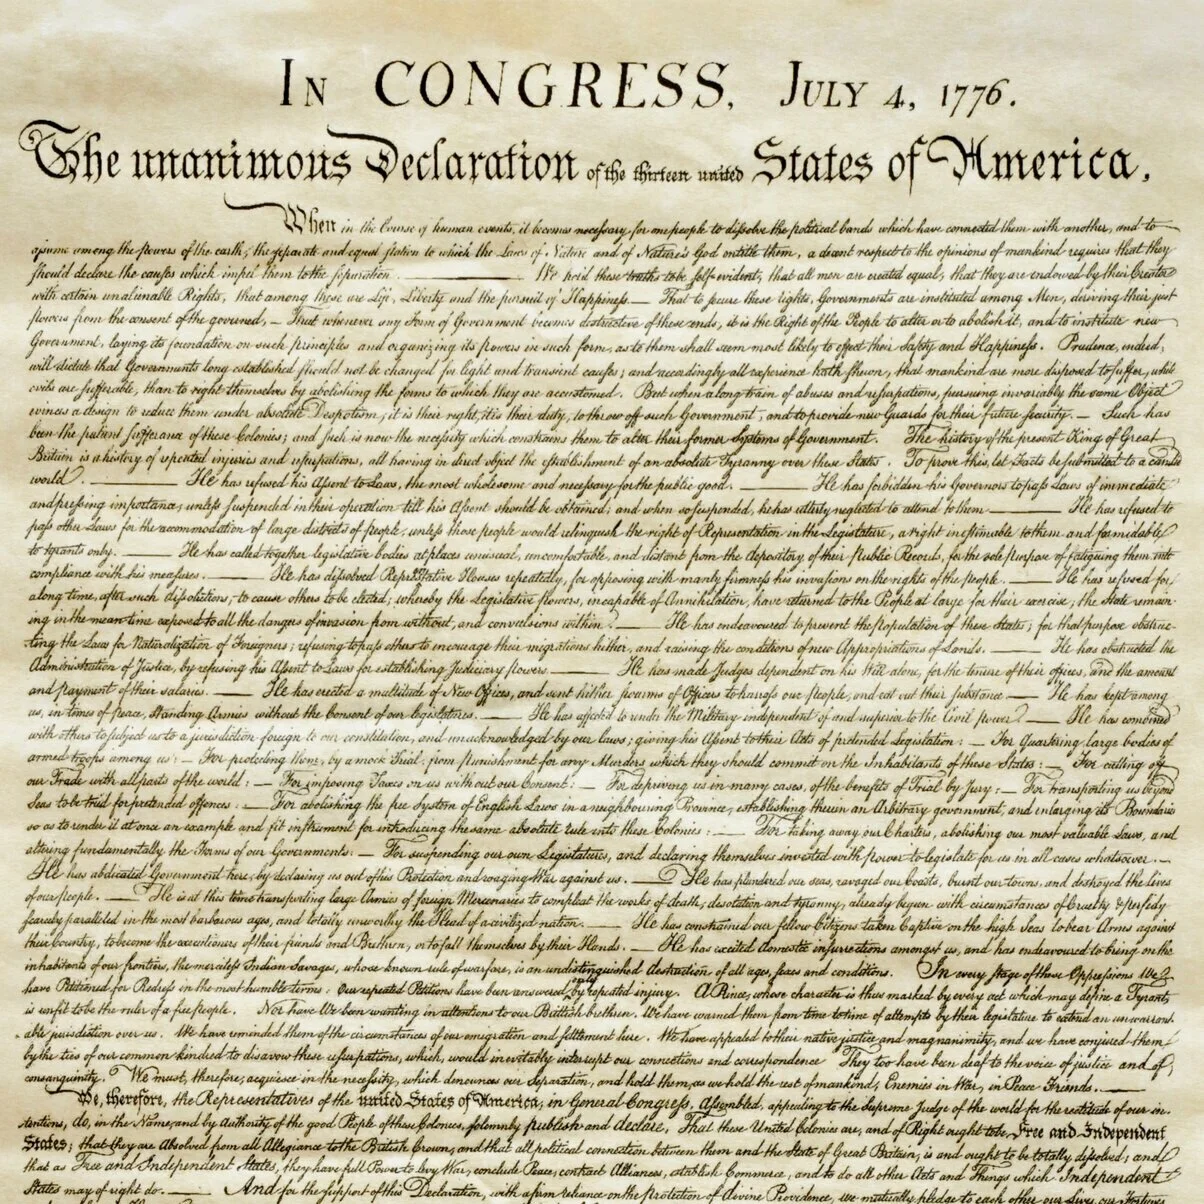 In CONGRESS, July 4, 1776.
The unanimous Declaration of the thirteen united States of America,
When in the Course of human events, it becomes necessary for one people to dissolve the political bands which have connected them with another, and to
assume among the powers of the earth, the separate and equal station to which the Laws of Nature and of Nature's God entitle them, a decent respect to the opinions of mankind requires that they
should declare the causes which impel them to the separation. ——— We hold these truths to be self-evident, that all men are created equal, that they are endowed by their Creator
with certain unalienable Rights, that among these are Life, Liberty and the pursuit of Happiness.— That to secure these rights, Governments are instituted among Men, deriving their just
powers from the consent of the governed, — That whenever any Form of Government becomes destructive of these ends, it is the Right of the People to alter or to abolish it, and to institute new
Government, laying its foundation on such principles and organizing its powers in such form, as to them shall seem most likely to effect their Safety and Happiness. Prudence, indeed,
will dictate that Governments long established should not be changed for light and transient causes; and accordingly all experience hath shewn, that mankind are more disposed to suffer, while
evils are sufferable, than to right themselves by abolishing the forms to which they are accustomed. But when a long train of abuses and usurpations, pursuing invariably the same Object
evinces a design to reduce them under absolute Despotism, it is their right, it is their duty, to throw off such Government, and to provide new Guards for their future security. — Such has
been the patient sufferance of these Colonies; and such is now the necessity which constrains them to alter their former Systems of Government. The history of the present King of Great
Britain is a history of repeated injuries and usurpations, all having in direct object the establishment of an absolute Tyranny over these States. To prove this, let Facts be submitted to a candid
world. ——— He has refused his Assent to Laws, the most wholesome and necessary for the public good. ——— He has forbidden his Governors to pass Laws of immediate
and pressing importance, unless suspended in their operation till his Assent should be obtained; and when so suspended, he has utterly neglected to attend to them ——— He has refused to
pass other Laws for the accommodation of large districts of people, unless those people would relinquish the right of Representation in the Legislature, a right inestimable to them and formidable
to tyrants only. ——— He has called together legislative bodies at places unusual, uncomfortable, and distant from the depository of their Public Records, for the sole purpose of fatiguing them into
compliance with his measures. ——— He has dissolved Representative Houses repeatedly, for opposing with manly firmness his invasions on the rights of the people. ——— He has refused for
a long time, after such dissolutions, to cause others to be elected; whereby the Legislative powers, incapable of Annihilation, have returned to the People at large for their exercise; the State remain-
ing in the mean time exposed to all the dangers of invasion from without, and convulsions within. ——— He has endeavoured to prevent the population of these States; for that purpose obstruc-
ting the Laws for Naturalization of Foreigners; refusing to pass others to encourage their migrations hither, and raising the conditions of new Appropriations of Lands. ——— He has obstructed the
Administration of Justice, by refusing his Assent to Laws for establishing Judiciary powers ——— He has made Judges dependent on his Will alone, for the tenure of their offices, and the amount
and payment of their salaries. ——— He has erected a multitude of New Offices, and sent hither swarms of Officers to harrass our people, and eat out their substance. — He has kept among
us, in times of peace, Standing Armies without the Consent of our legislatures. ——— He has affected to render the Military independent of and superior to the Civil power. ——— He has combined
with others to subject us to a jurisdiction foreign to our constitution, and unacknowledged by our laws; giving his Assent to their Acts of pretended Legislation: — For Quartering large bodies of
armed troops among us: — For protecting them, by a mock Trial, from punishment for any Murders which they should commit on the Inhabitants of these States: — For cutting off
our Trade with all parts of the world: — For imposing Taxes on us without our Consent: — For depriving us in many cases, of the benefits of Trial by Jury: — For transporting us beyond
Seas to be tried for pretended offences: — For abolishing the free System of English Laws in a neighbouring Province, establishing therein an Arbitrary government, and enlarging its Boundaries
so as to render it at once an example and fit instrument for introducing the same absolute rule into these Colonies: — For taking away our Charters, abolishing our most valuable Laws, and
altering fundamentally the Forms of our Governments: — For suspending our own Legislatures, and declaring themselves invested with power to legislate for us in all cases whatsoever. —
He has abdicated Government here, by declaring us out of his Protection and waging War against us. ——— He has plundered our seas, ravaged our Coasts, burnt our towns, and destroyed the lives
of our people. ——— He is at this time transporting large Armies of foreign Mercenaries to compleat the works of death, desolation and tyranny, already begun with circumstances of Cruelty & perfidy
scarcely paralleled in the most barbarous ages, and totally unworthy the Head of a civilized nation. ——— He has constrained our fellow Citizens taken Captive on the high Seas to bear Arms against
their Country, to become the executioners of their friends and Brethren, or to fall themselves by their Hands. — He has excited domestic insurrections amongst us, and has endeavoured to bring on the
inhabitants of our frontiers, the merciless Indian Savages, whose known rule of warfare, is an undistinguished destruction of all ages, sexes and conditions. In every stage of these Oppressions We
have Petitioned for Redress in the most humble terms: Our repeated Petitions have been answered only by repeated injury. A Prince, whose character is thus marked by every act which may define a Tyrant,
is unfit to be the ruler of a free people. Nor have We been wanting in attentions to our Brittish brethren. We have warned them from time to time of attempts by their legislature to extend an unwarrant-
able jurisdiction over us. We have reminded them of the circumstances of our emigration and settlement here. We have appealed to their native justice and magnanimity, and we have conjured them
by the ties of our common kindred to disavow these usurpations, which, would inevitably interrupt our connections and correspondence They too have been deaf to the voice of justice and of
consanguinity. We must, therefore, acquiesce in the necessity, which denounces our Separation, and hold them, as we hold the rest of mankind, Enemies in War, in Peace Friends. ———
We, therefore, the Representatives of the united States of America, in General Congress, Assembled, appealing to the Supreme Judge of the world for the rectitude of our in-
tentions, do, in the Name, and by Authority of the good People of these Colonies, solemnly publish and declare, That these United Colonies are, and of Right ought to be Free and Independent
States; that they are Absolved from all Allegiance to the British Crown, and that all political connection between them and the State of Great Britain, is and ought to be totally dissolved; and
that as Free and Independent States, they have full Power to levy War, conclude Peace, contract Alliances, establish Commerce, and to do all other Acts and Things which Independent
States may of right do. — And for the support of this Declaration, with a firm reliance on the protection of divine Providence, we mutually pledge to each other our Lives, our Fortunes